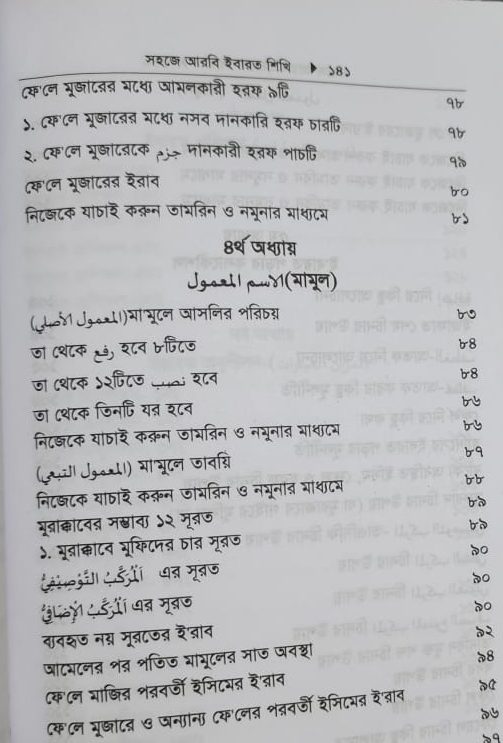 সহজে আরবি ইবারত শিখি ▶ ১৪১
ফে'লে মুজারের মধ্যে আমলকারী হরফ ৯টি ৭৮
১. ফে'লে মুজারের মধ্যে নসব দানকারি হরফ চারটি ৭৮
২. ফে'লে মুজারেকে جزم দানকারী হরফ পাচটি ৭৯
ফে'লে মুজারের ই'রাব ৮০
নিজেকে যাচাই করুন তামরিন ও নমুনার মাধ্যমে ৮১
৪র্থ অধ্যায়
الاسم المعمول(মামুল)
(المعمول الأصلي)মা'মূলে আসলির পরিচয় ৮৩
তা থেকে رفع হবে ৮টিতে ৮৪
তা থেকে ১২টিতে نصب হবে ৮৪
তা থেকে তিনটি যর হবে ৮৬
নিজেকে যাচাই করুন তামরিন ও নমুনার মাধ্যমে ৮৬
(المعمول التبعي) মা'মূলে তাবয়ি ৮৭
নিজেকে যাচাই করুন তামরিন ও নমুনার মাধ্যমে ৮৮
মুরাক্কাবের সম্ভাব্য ১২ সূরত ৮৯
১. মুরাক্কাবে মুফিদের চার সূরত ৮৯
اَلْمُرَكَّبُ التَّوْصِيْفِيُّ এর সূরত ৯০
اَلْمُرَكَّبُ الْإِضَافِيُّ এর সূরত ৯০
ব্যবহৃত নয় সূরতের ই'রাব ৯০
আমেলের পর পতিত মামূলের সাত অবস্থা ৯২
ফে'লে মাজির পরবর্তী ইসিমের ই'রাব ৯৪
ফে'লে মুজারে ও অন্যান্য ফে'লের পরবর্তী ইসিমের ই'রাব ৯৫
৯৬
৯৭